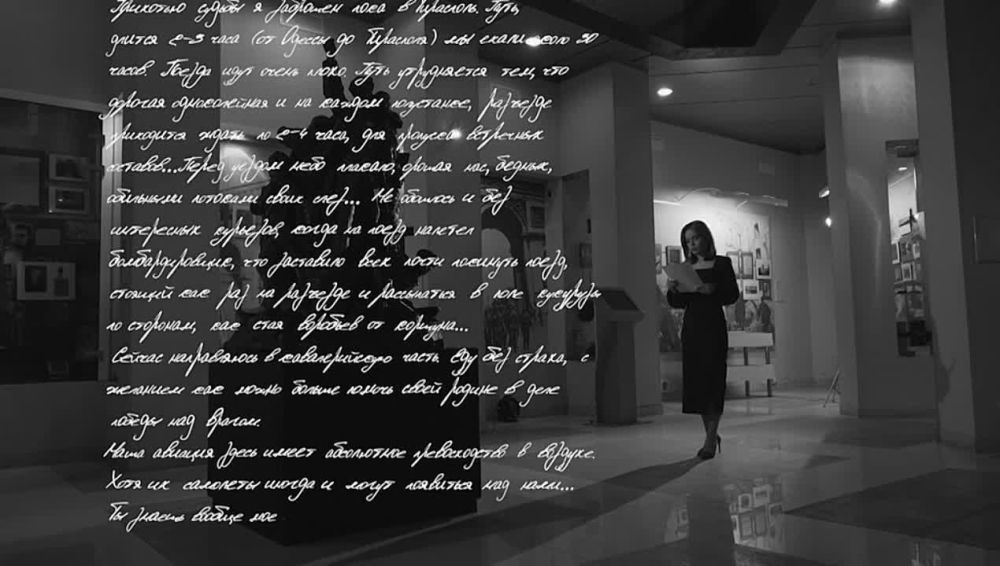 Прихотью судьбы я заброшен пока в Тирасполь. Путь,
длится 2-3 часа (от Одессы до Тирасполя) мы ехали около 30
часов. Поезда идут очень плохо. Путь утрудняется тем, что
дорога одноколейная и на каждом полустанке, разъезде
приходится ждать по 2-4 часа, для пропуска встречных
составов... Перед уездом небо плакало, орошая нас, бедных,
обильными потоками своих слез... Не обошлось и без
интересных курьезов, когда на поезд налетел
бомбардировщик, что заставило всех почти покинуть поезд,
стоящий как раз на разъезде и рассыпаться в поле кукурузы
по сторонам, как стая воробьев от коршуна...
Сейчас направляюсь в кавалерийскую часть. Еду без страха, с
желанием как можно больше помочь своей родине в деле
победы над врагом.
Наша авиация здесь имеет абсолютное превосходство в воздухе.
Хотя их самолеты иногда и могут появиться над нами...
Ты знаешь вообще мое